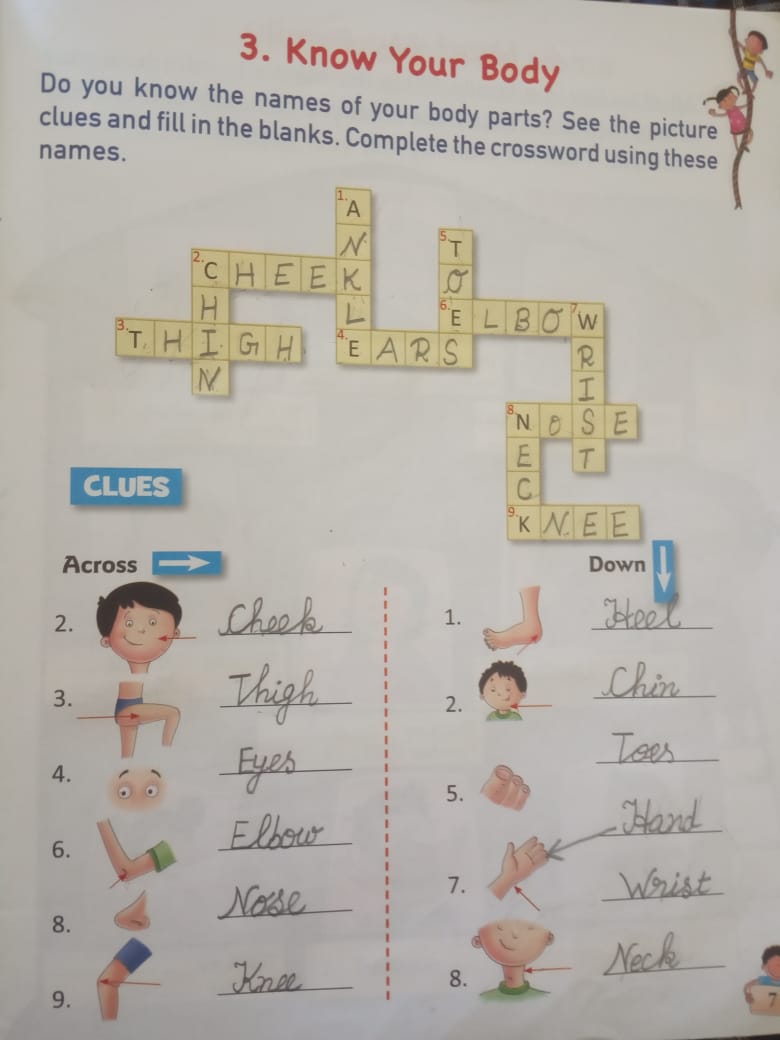 3. Know Your Body
Do you know the names of your body parts? See the picture
clues and fill in the blanks. Complete the crossword using these
names.
1. A
N
5. T
2. C H E E K
O
H
L
6. E L B O 7. W
3. T H I G H
4. E A R S
R
N
I
8. N O S E
E
T
C
9. K N E E
CLUES
Across
Down
2. Cheek
3. Thigh
4. Eyes
6. Elbow
8. Nose
9. Knee
1. Heel
2. Chin
5. Toes
Hand
7. Wrist
8. Neck
7